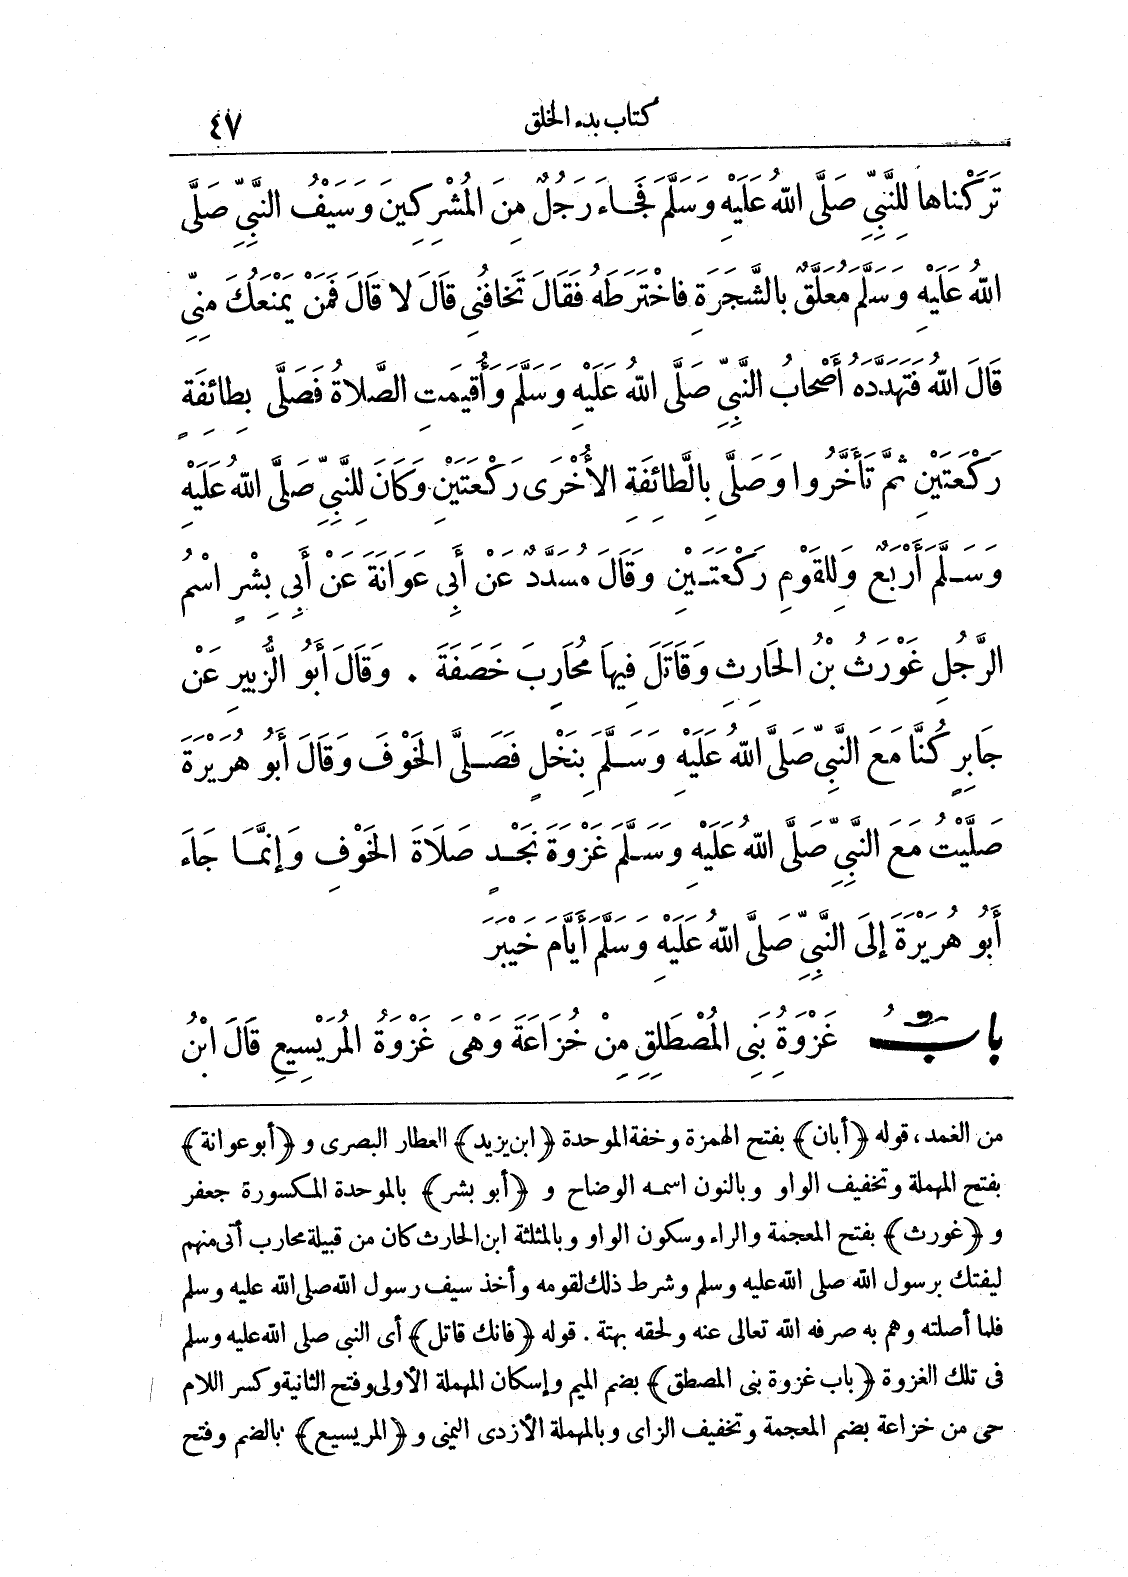 كتاب بدء الخلق ٤٧
تَرَكْنَاها لِلنَّبِيِّ صَلَّى اللهُ عَلَيْهِ وَسَلَّمَ فَجاءَ رَجُلٌ مِنَ المُشْرِكِينَ وَسَيْفُ النَّبِيِّ صَلَّى
اللهُ عَلَيْهِ وَسَلَّمَ مُعَلَّقٌ بالشَّجَرَةِ فاخْتَرَطَهُ فَقالَ تَخافُنِى قالَ لا قالَ فَمَنْ يَمْنَعُكَ مِنِّى
قَالَ اللهُ فَتَهَدَّدَهُ أَصْحابُ النَّبِيِّ صَلَّى اللهُ عَلَيْهِ وَسَلَّمَ وَأُقِيمَتِ الصَّلاةُ فَصَلَّى بِطائِفَةٍ
رَكْعَتَيْنِ ثُمَّ تَأَخَّرُوا وَصَلَّى بِالطَّائِفَةِ الأُخْرَى رَكْعَتَيْنِ وَكَانَ لِلنَّبِيِّ صَلَّى اللهُ عَلَيْهِ
وَسَلَّمَ أَرْبَعٌ وَلِلقَوْمِ رَكْعَتَيْنِ وَقَالَ مُسَدَّدٌ عَنْ أَبِى عَوَانَةَ عَنْ أَبِى بِشْرٍ اسْمُ
الرَّجُلِ غَوْرَثُ بْنُ الحَارِثِ وَقَاتَلَ فِيهَا مُحَارِبَ خَصَفَةَ . وَقَالَ أَبُو الزُّبَيرِ عَنْ
جَابِرٍ كُنَّا مَعَ النَّبِيِّ صَلَّى اللهُ عَلَيْهِ وَسَلَّمَ بِنَخْلٍ فَصَلَّى الخَوْفَ وَقَالَ أَبُو هُرَيْرَةَ
صَلَّيْتُ مَعَ النَّبِيِّ صَلَّى اللهُ عَلَيْهِ وَسَلَّمَ غَزْوَةَ نَجْدٍ صَلَاةَ الخَوْفِ وَإِنَّمَا جَاءَ
أَبُو هُرَيْرَةَ إِلَى النَّبِيِّ صَلَّى اللهُ عَلَيْهِ وَسَلَّمَ أَيَّامَ خَيْبَرَ
بابُ غَزْوَةِ بَنِى المُصْطَلِقِ مِنْ خُزَاعَةَ وَهْىَ غَزْوَةُ المُرَيْسِيعِ قَالَ ابْنُ
من الغمد، قوله ﴿أبان﴾ بفتح الهمزة وخفة الموحدة ﴿ابن يزيد﴾ العطار البصرى و ﴿أبو عوانة﴾
بفتح المهملة وتخفيف الواو وبالنون اسمه الوضاح و ﴿أبو بشر﴾ بالموحدة المكسورة جعفر
و ﴿غورث﴾ بفتح المعجمة والراء وسكون الواو وبالمثلثة ابن الحارث كان من قبيلة محارب أتى منهم
ليفتك برسول الله صلى الله عليه وسلم وشرط ذلك لقومه وأخذ سيف رسول الله صلى الله عليه وسلم
فلما أصلته وهم به صرفه الله تعالى عنه ولحقه بهتة . قوله ﴿فانك قاتل﴾ أى النبى صلى الله عليه وسلم
فى تلك الغزوة ﴿باب غزوة بنى المصطق﴾ بضم الميم وإسكان المهملة الأولى وفتح الثانية وكسر اللام
حى من خزاعة بضم المعجمة وتخفيف الزاى وبالمهملة الأزدى اليمنى و ﴿المريسيع﴾ بالضم وفتح